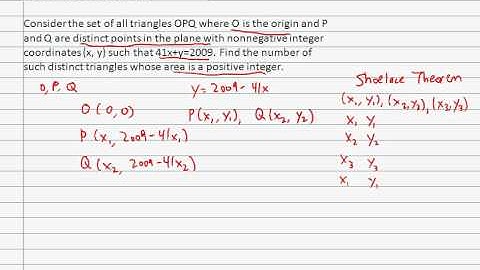 Consider the set of all triangles OPQ where O is the origin and P
and Q are distinct points in the plane with nonnegative integer
coordinates (x, y) such that 41x+y=2009. Find the number of
such distinct triangles whose area is a positive integer.
O, P, Q
y = 2009 - 41x
Shoelace Theorem
O (0,0)
P(x₁, y₁), Q(x₂, y₂)
(x₁, y₁), (x₂, y₂), (x₃, y₃)
P (x₁, 2009-41x₁)
x₁ y₁
x₂ y₂
Q (x₂, 2009-41x₂)
x₃ y₃
x₁ y₁